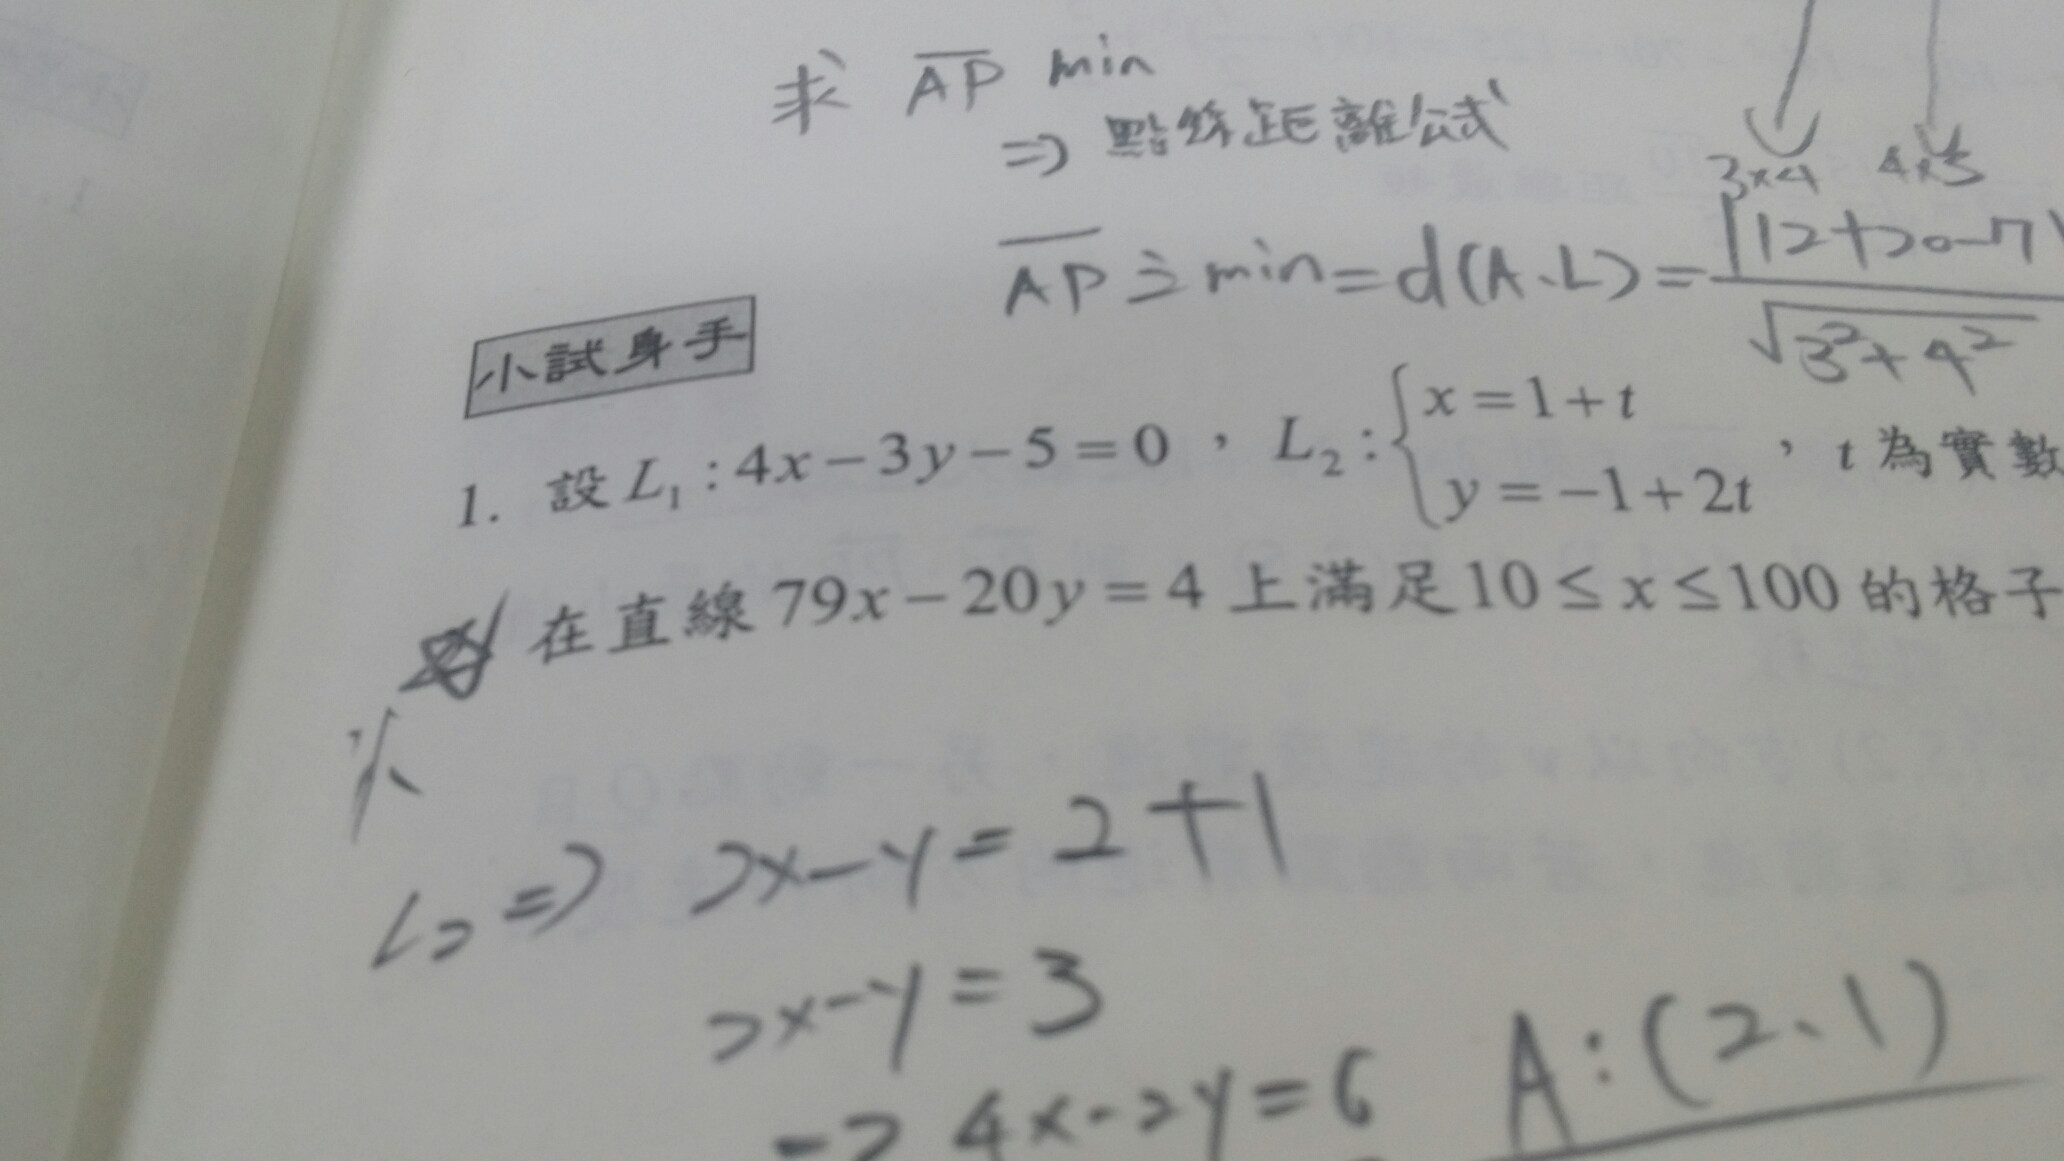 求 AP min
⇒ 點線距離公式
3×4 4×5
AP 之 min = d(A、L) = |12+20-7|
√3²+4²
小試身手
1. 設 L₁ : 4x－3y－5＝0 ， L₂ : { x＝1+t
y＝－1+2t ， t 為實數
在直線 79x－20y＝4 上滿足 10≤x≤100 的格子
L₂ ⇒ 2x-y=2+1
2x-y=3
→ 4x-2y=6 A:(2、1)